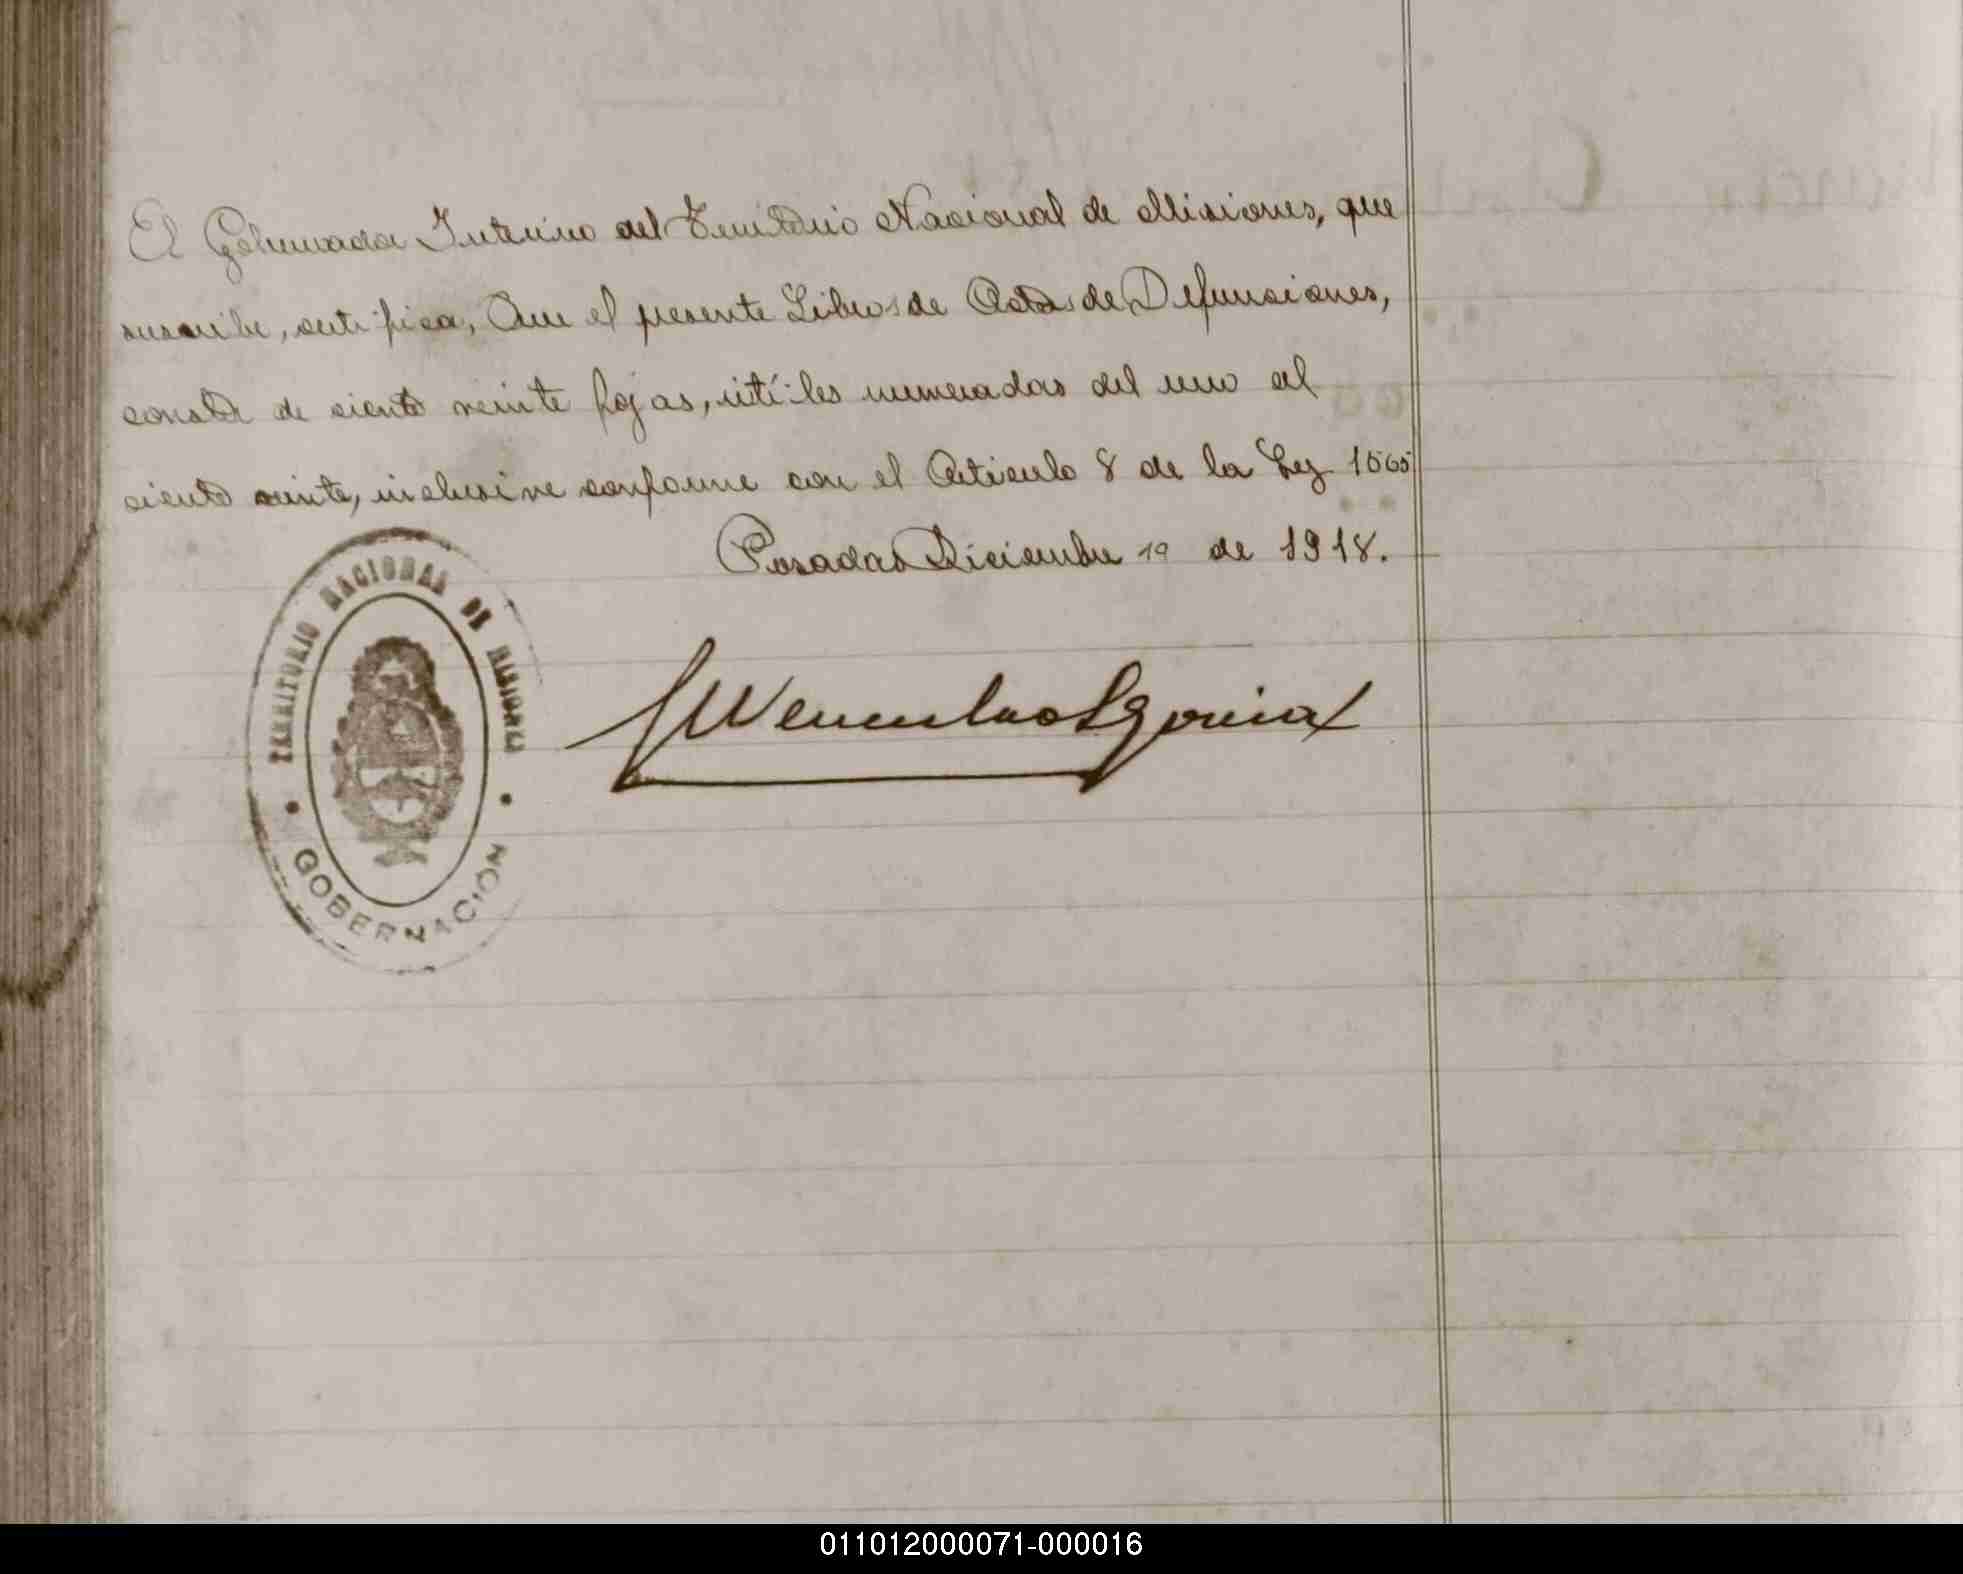 El Gobernador Interino del Territorio Nacional de Misiones, que
suscribe, certifica, Que el presente Libro de Actas de Defunciones,
consta de ciento veinte fojas, utiles numeradas del uno al
ciento veinte, inclusive conforme con el Articulo 8 de la Ley 1565
Posadas Diciembre 19 de 1918.
TERRITORIO NACIONAL DE MISIONES
GOBERNACIÓN
011012000071-000016